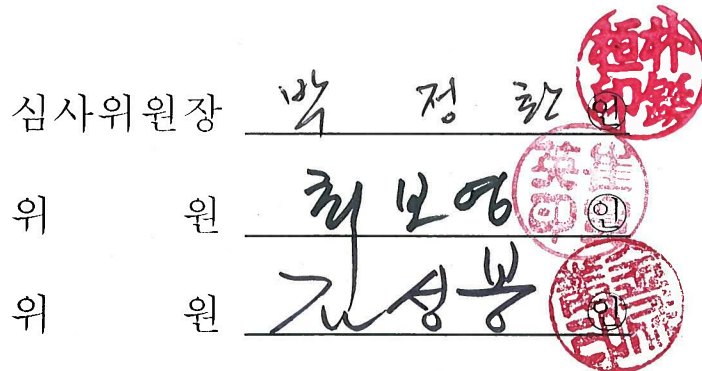 심사위원장 박 정 환 인
위 원 최 보 영 인
위 원 김 성 봉 인